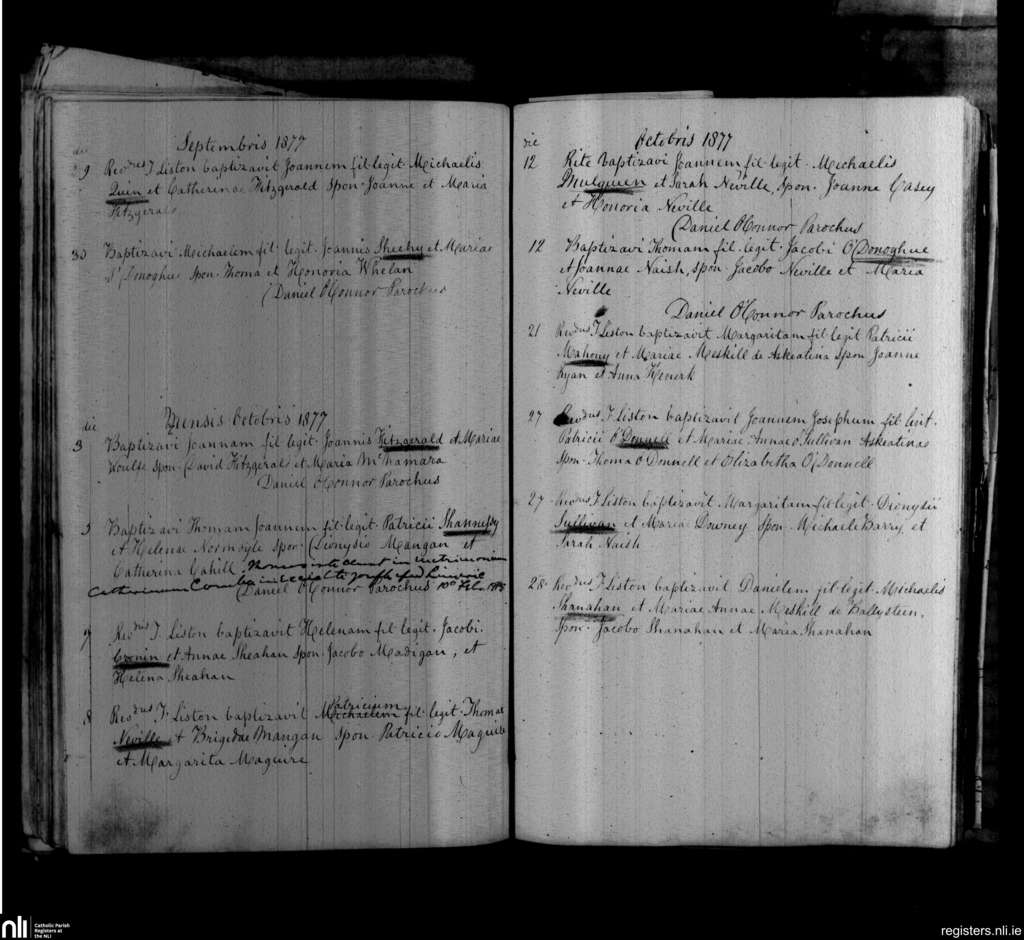 Septembris 1877
die
9 Revdus T Liston baptizavit Joannem fil legit Michaelis
Quin et Catherinae Fitzgerald Spon Joanne et Maria
Fitzgerald
30 Baptizavi Meichaelem fil legit Joannis Sheehy et Mariae
O'Donoghue Spon Thoma et Honoria Whelan
Daniel O'Connor Parochus
Mensis Octobris 1877
die
3 Baptizavi Joannam fil legit Joannis Fitzgerald et Mariae
Woulfe Spon David Fitzgerald et Maria McNamara
Daniel O'Connor Parochus
3 Baptizavi Thomam Joannem fil legit Patricii Shannessy
et Helenae Normoyle Spon Dionysio Mangan et
Catherina Cahill. in matrimonium
Catherinam
Daniel O'Connor Parochus 10 Feb
7 Revdus T. Liston baptizavit Helenam fil legit Jacobi
Cronin et Annae Sheahan Spon Jacobo Madigan, et
Helena Sheahan
Patricium
8 Revdus T. Liston baptizavit Michaelem fil legit Thomae
Neville et Brigidae Mangan Spon Patricio Maguire
et Margarita Maguire
Octobris 1877
die
12 Rite Baptizavi Joannem fil legit Michaelis
Mulqueen et Sarah Neville, Spon Joanne Casey
et Honoria Neville
Daniel O'Connor Parochus
12 Baptizavi Thomam fil legit Jacobi O'Donoghue
et Joannae Naish, Spon Jacobo Neville et Maria
Neville
Daniel O'Connor Parochus
21 Revdus T Liston baptizavit Margaritam fil legit Patricii
Mahony et Mariae Meskill de Askeatina Spon Joanne
Ryan et Anna
27 Revdus T Liston baptizavit Joannem Josephum fil legit
Patricii O'Donnell et Mariae Annae O'Sullivan Askeatinae
Spon Thoma O'Donnell et Elizabetha O'Donnell
27 Revdus T Liston baptizavit Margaritam fil legit Dionysii
Sullivan et Maria Downey Spon Michaele Barry et
Sarah Naish
28 Revdus T Liston baptizavit Danielem fil legit Michaelis
Shanahan et Mariae Annae Meskill de Ballysteen,
Spon Jacobo Shanahan et Maria Shanahan
nli
Catholic Parish
Registers at
the NLI
registers.nli.ie